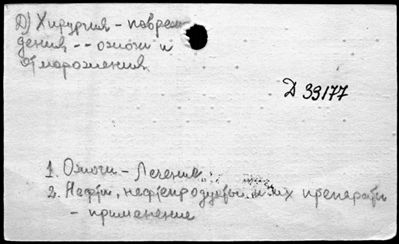 Д) Хирургия - повреж-
дения -- ожоги и
отморожения.
Д 39177
1. Ожоги - Лечение.
2. Нефти, нефтепродукты и их препараты
- применение